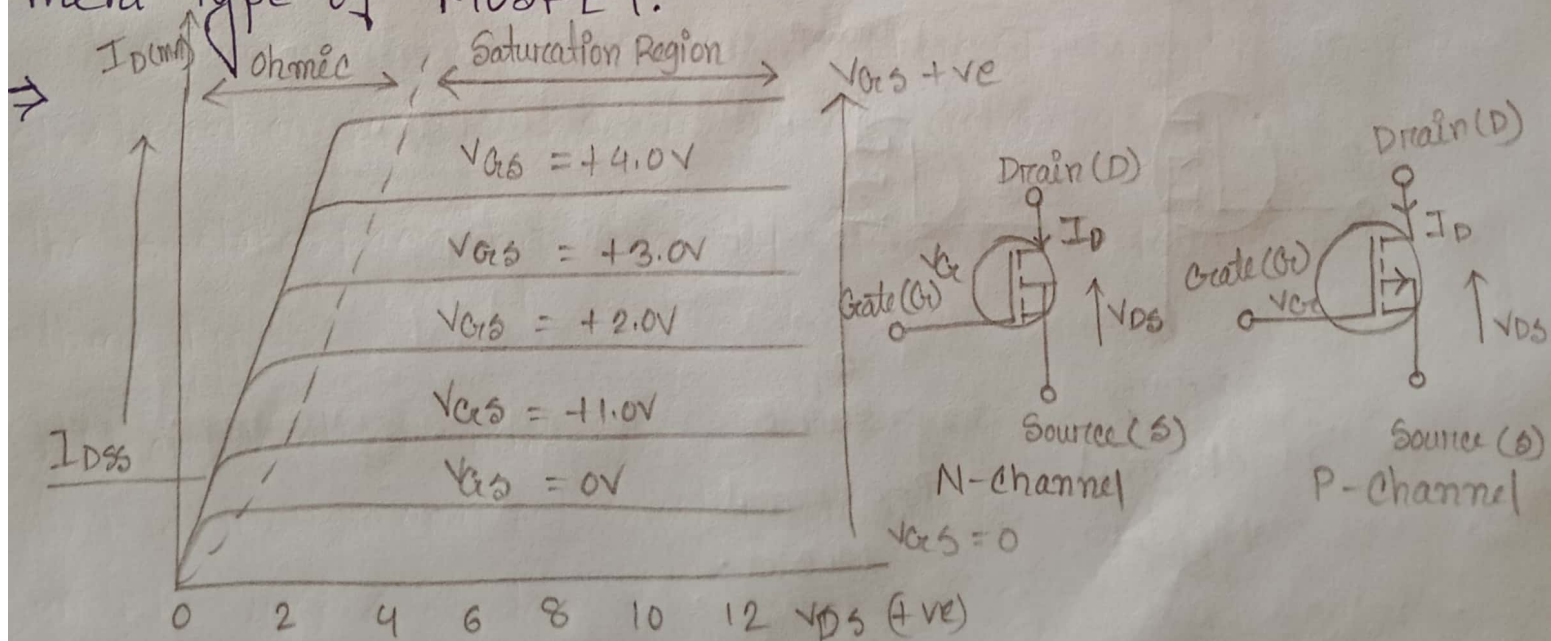 Type of MOSFET.
⇒
ID(mA)
ohmic
Saturcation Region
VGS +ve
VGS = +4.0V
VGS = +3.0V
VGS = +2.0V
VGS = +1.0V
VGS = 0V
IDSS
VGS = 0
0 2 4 6 8 10 12 VDS (+ve)
Drain (D)
ID
VG
Gate (G)
VDS
Source (S)
N-Channel
Drain (D)
ID
Gate (G)
VG
VDS
Source (S)
P-Channel